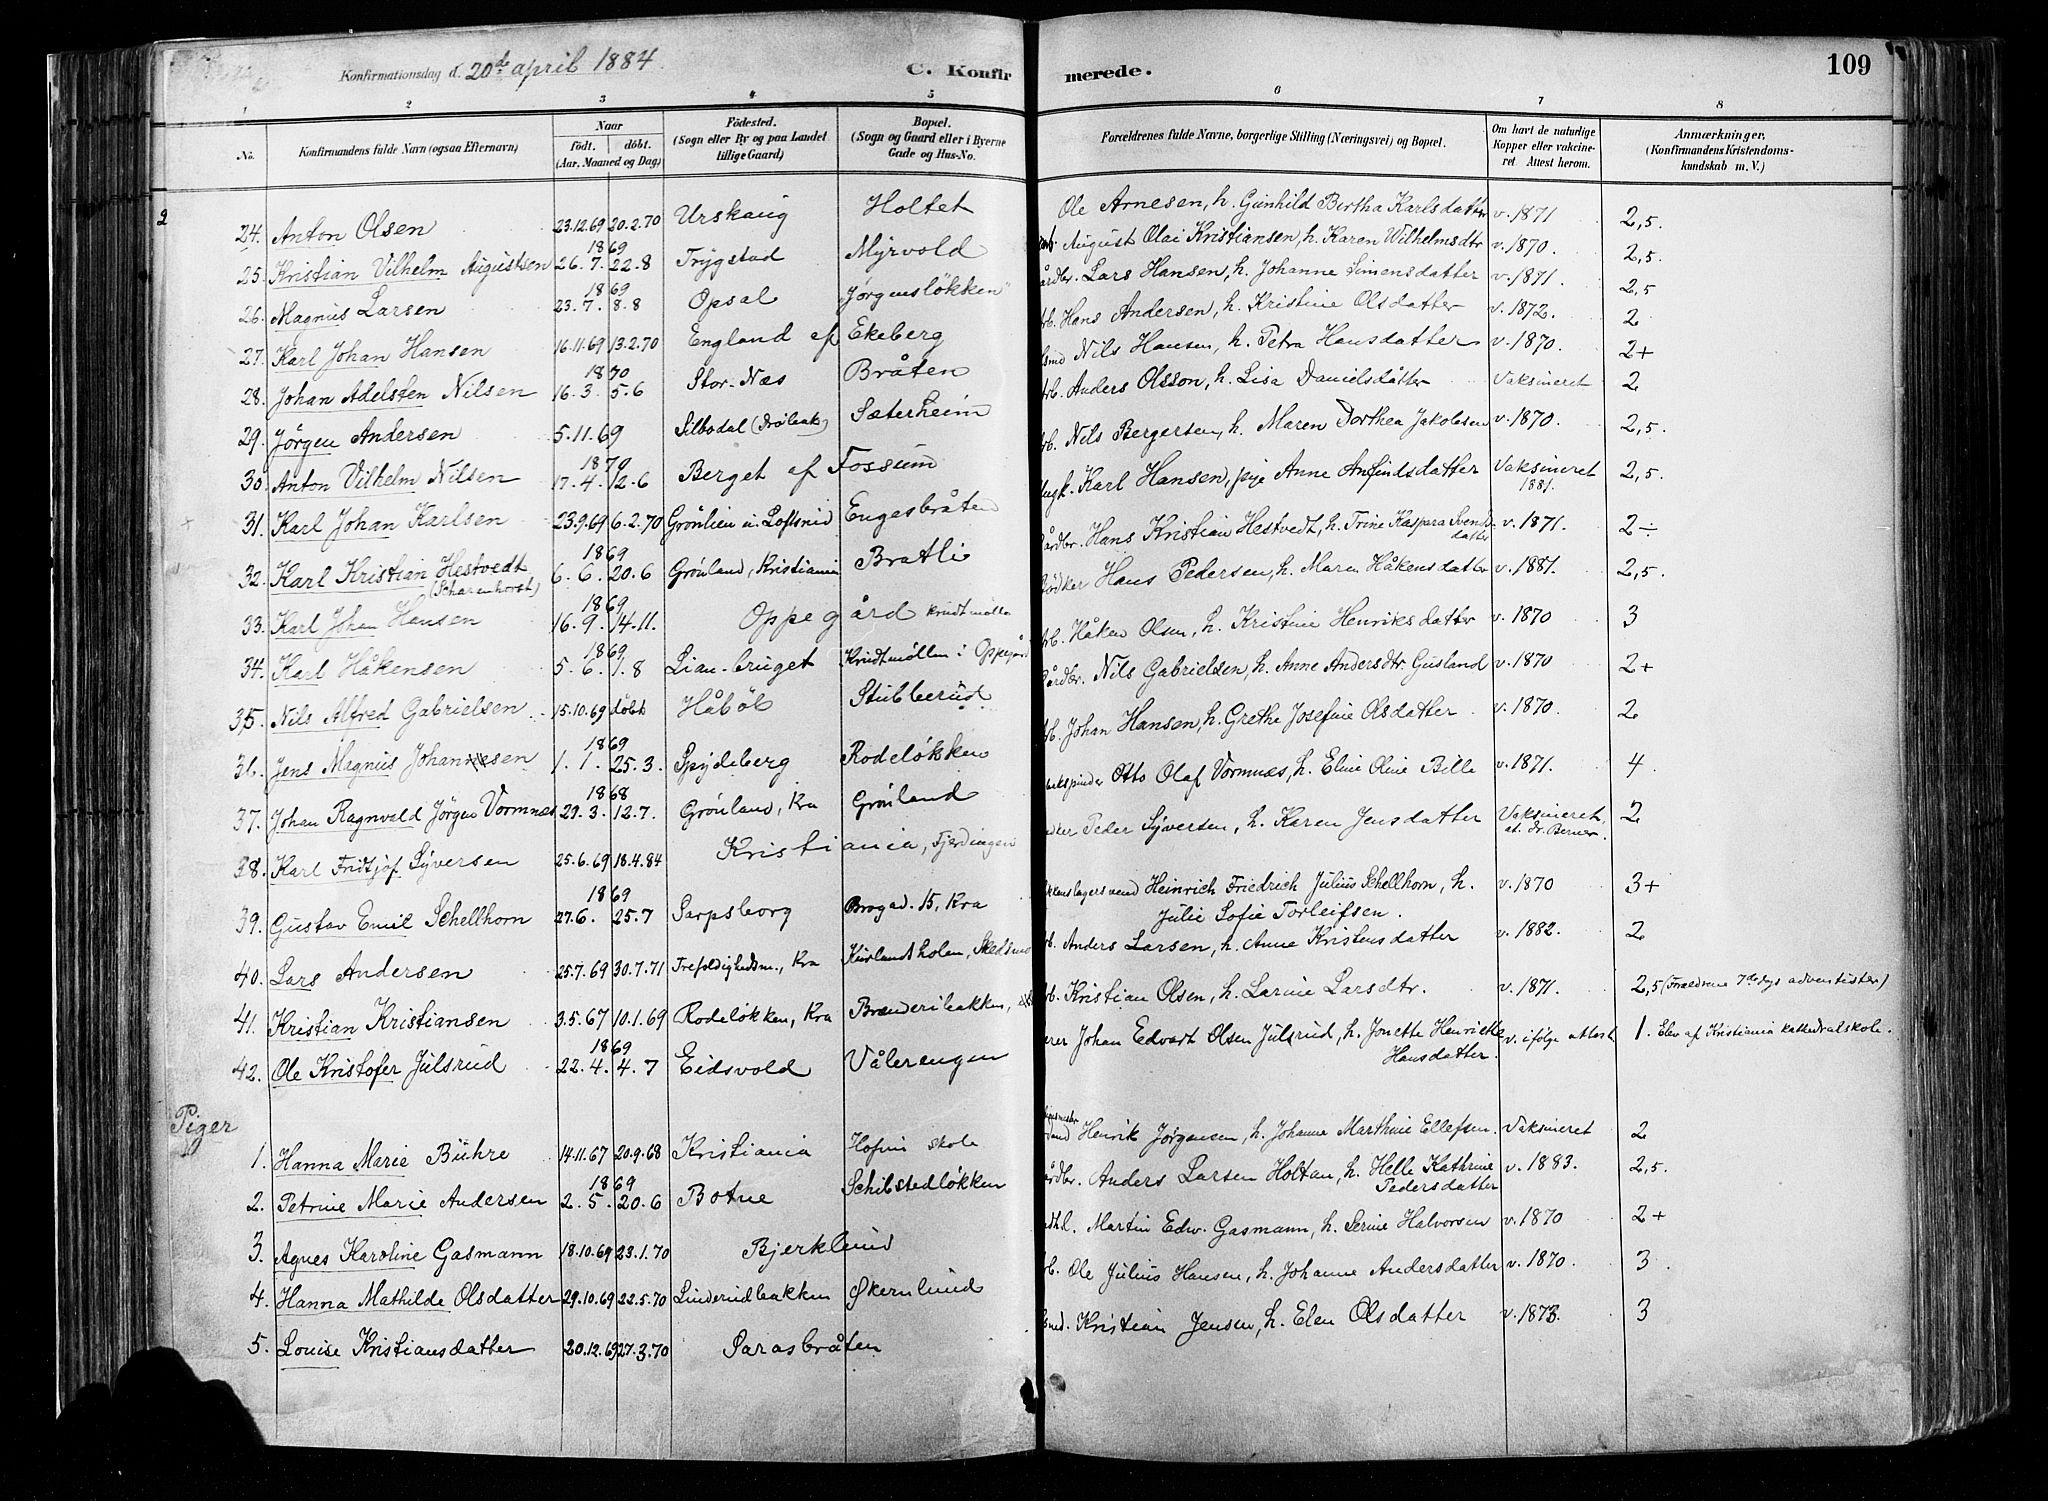 Konfirmationsdag d. 20de april 1884.
C. Konfirmerede.
109
1 2 3 4 5 6 7 8
No.
Konfirmandens fulde Navn (ogsaa Efternavn)
Naar
født. døbt.
(Aar, Maaned og Dag)
Födested.
(Sogn eller By og paa Landet
tillige Gaard)
Bopæl.
(Sogn og Gaard eller i Byerne
Gade og Hus-No.
Forældrenes fulde Navne, borgerlige Stilling (Næringsvei) og Bopæl.
Om havt de naturlige
Kopper eller vakcine-
ret Attest herom.
Anmærkninger.
(Konfirmandens Kristendoms-
kundskab m. V.)
2
24. Anton Olsen 23.12.69 20.2.70 Urskaug Holtet Ole Arnesen, h. Gunhild Bertha Karlsdatter v. 1871 2,5.
25. Kristian Vilhelm Augustsen 1869 26.7. 22.8 Trygstad Myrvold August Olai Kristiansen, h. Karen Wilhelmsdtr v. 1870. 2,5.
26. Magnus Larsen 1869 23.7. 8.8 Opsal "Jørgensløkken" Lars Hansen, h. Johanne Simensdatter v. 1871. 2,5
27. Karl Johan Hansen 16.11.69 13.2.70 England af Ekeberg Hans Andersen, h. Kristine Olsdatter v. 1872. 2
28. Johan Adelsten Nilsen 1870 16.3 5.6 Stor-Næs Bråten Nils Hansen, h. Petra Hansdatter v. 1870. 2+
29. Jörgen Andersen 5.11.69 Silbodal Sæterheim Anders Olsson, h. Lisa Danielsdåtter Vaksineret 2
30. Anton Vilhelm Nilsen 1870 17.4. 12.6 Berget af Fossum Nils Bergersen, h. Maren Dorthea Jakobsen v. 1870. 2,5.
31. Karl Johan Karlsen 23.9.69 6.2.70 Grönlien u. Loftsrud Engesbråten Karl Hansen, pige Anne Anfindsdatter Vaksineret 1881. 2,5.
32. Karl Kristian Hestvedt (Scharenhorst) 1869 6.6. 20.6 Grönland, Kristiania Bratli Hans Kristian Hestvedt, h. Trine Kaspara Svends-
datter v. 1871. 2÷
33. Karl Johan Hansen 1869 16.9. 14.11. Oppegård krudtmølle Hans Pedersen, h. Maren Håkensdatter v. 1881. 2,5.
34. Karl Håkensen 1869 5.6. 1.8 Lian-bruget Krudtmøllen i Oppegård Håken Olsen, h. Kristine Henriksdatter v. 1870 3
35. Nils Alfred Gabrielsen 15.10.69 döbt Håböl Stubberud Nils Gabrielsen, h. Anne Andersdtr. Gusland v. 1870 2+
36. Jens Magnus Johannesen 1869 1.1. 25.3. Spydeberg Rodeløkken Johan Hansen, h. Grethe Josefine Olsdatter v. 1870. 2
37. Johan Ragnvald Jörgen Vormnæs 1868 29.3. 12.7. Grönland, Kra Grönland Otto Olaf Vormnæs, h. Eline Oline Bille v. 1871. 4
38. Karl Fridtjof Syversen 25.6.69 18.4.84 Kristiania, Fjerdingen Peder Syversen, h. Karen Jensdatter Vaksineret
at. Dr. Berner 2
39. Gustav Emil Schellhorn 1869 27.6. 25.7 Sarpsborg Brogad. 15, Kra Heinrich Friedrich Julius Schellhorn, h.
Julie Sofie Torleifsen. v. 1870 3+
40. Lars Andersen 25.7.69 30.7.71 Trefoldighedsm., Kra Kurlandsholen, Skedsmo Anders Larsen, h. Anne Kristensdatter v. 1882. 2
41. Kristian Kristiansen 3.5.67 10.1.69 Rodeløkken, Kra Brænderibakken, Kristian Olsen, h. Larine Larsdtr. v. 1871. 2,5 (Forældrene 7de dags adventister)
42. Ole Kristofer Julsrud 1869 22.4. 4.7 Eidsvold Vålerengen Johan Edvart Olsen Julsrud, h. Jonette Henriette
Hansdatter. v. ifølge attest 1. Elev af Kristiania kathedralskole.
Piger
1. Hanna Marie Bühre 14.11.67 20.9.68 Kristiania Hofvin skole Henrik Jørgensen, h. Johanne Marthine Ellefsen. Vaksineret 2
2. Petrine Marie Andersen 1869 2.5. 20.6 Botne Schibstedløkken Anders Larsen Holtan, h. Helle Kathrine
Pedersdatter v. 1883. 2,5.
3. Agnes Karoline Gasmann 18.10.69 23.1.70 Bjerklund Martin Edw. Gasmann, h. Serine Halvorsen v. 1870 2+
4. Hanna Mathilde Olsdatter 29.10.69 22.5.70 Linderudbakken Økernlund Ole Julius Hansen, h. Johanne Andersdatter v. 1870. 3
5. Louise Kristiansdatter 20.12.69 27.3.70 Sarasbråten Kristian Jensen, h. Elen Olsdatter v. 1873. 3